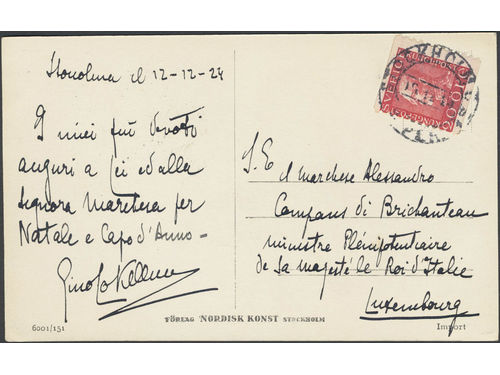 Stocolma il 12-12-24
I miei più devoti
auguri a Lei ed alla
Signora Marchesa per
Natale e Capo d'Anno-
Gino
S.E. il Marchese Alessandro
Compans di Brichanteau
ministre Plénipotentiaire
de Sa majesté le Roi d'Italie
Luxembourg
FÖRLAG NORDISK KONST STOCKHOLM
6001/151
Import